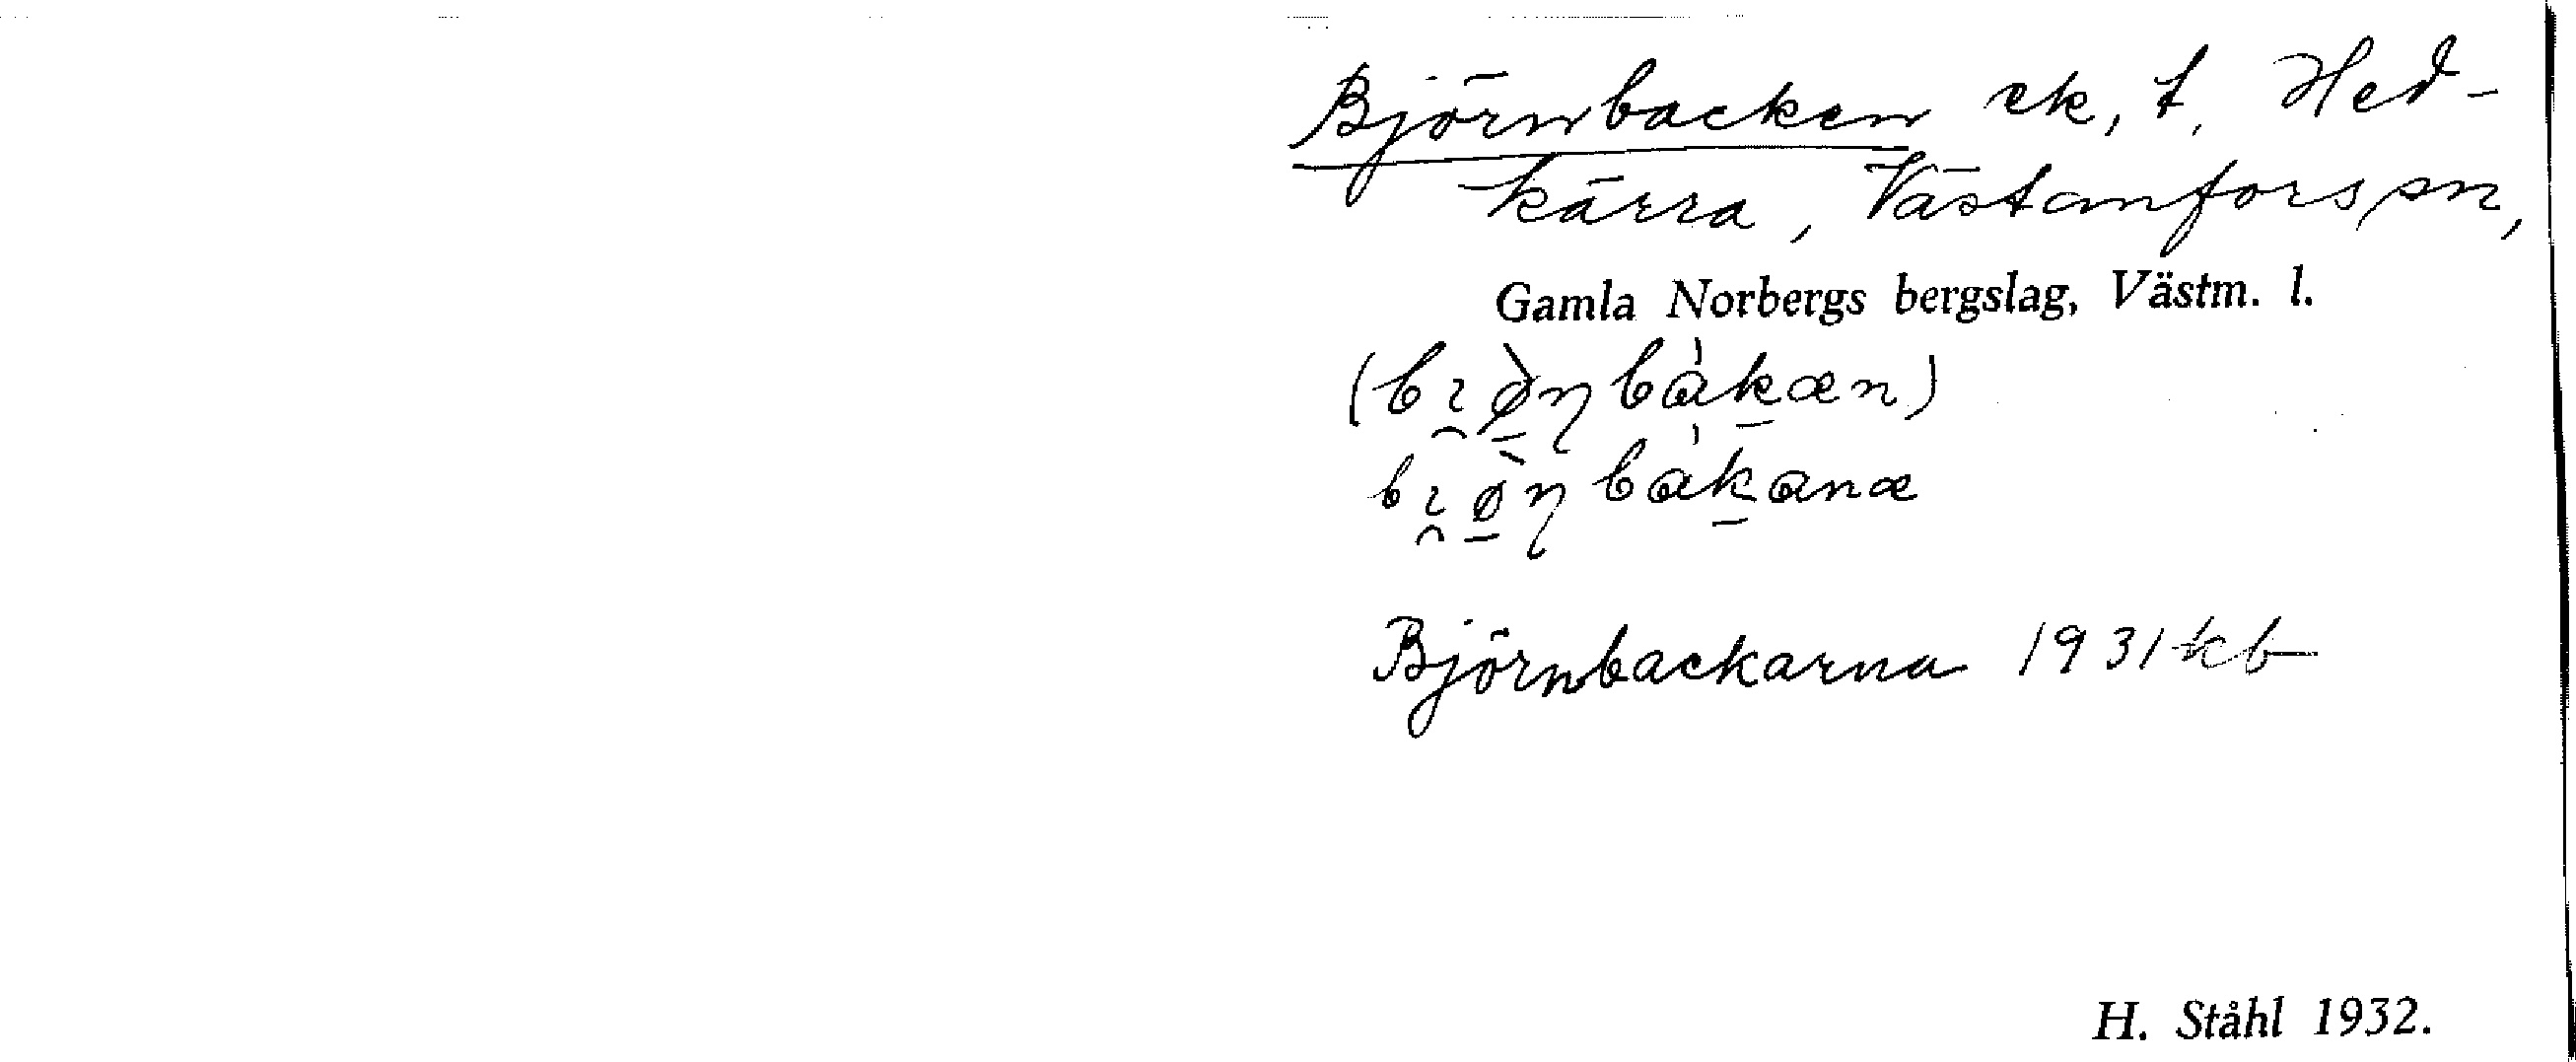 Björnbacken ek, t. Hed-
kärra, Västanfors sn,
Gamla Norbergs bergslag, Västm. l.
(bı̯ø̀ɳbàkæn)
bı̯ø̀ɳbàkanæ
Björnbackarna 1931 kb
H. Ståhl 1932.